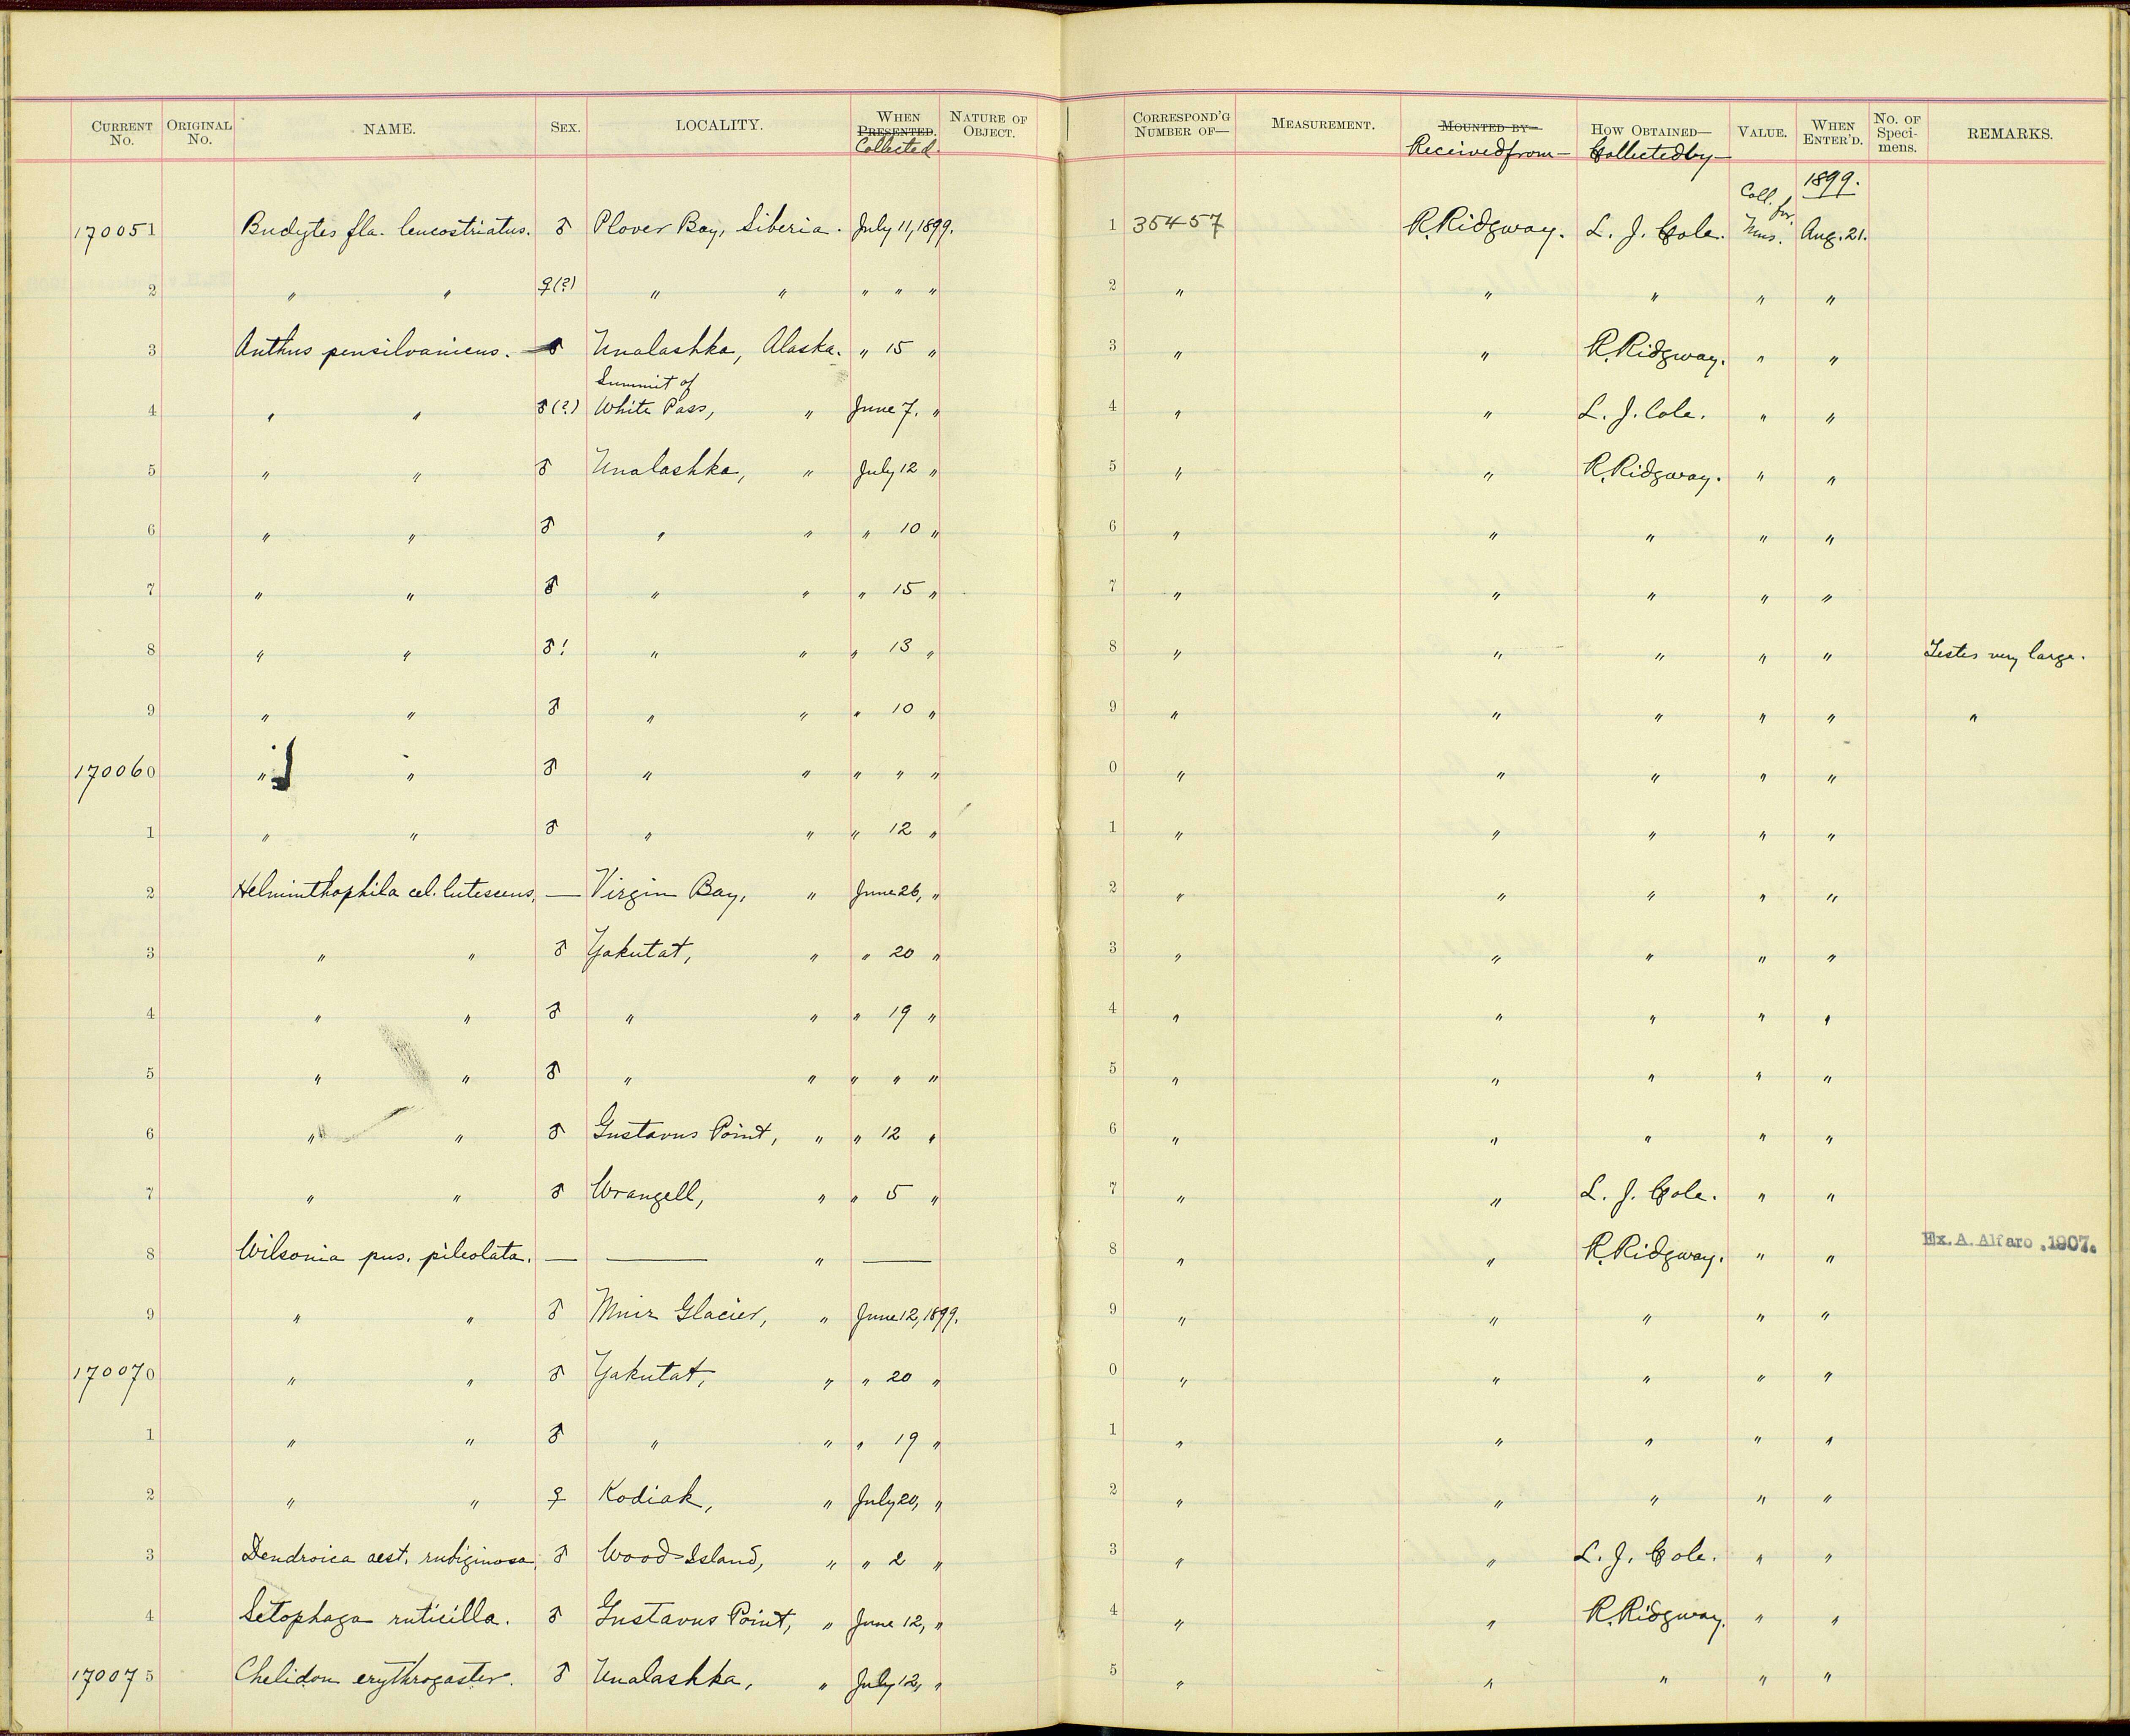 CURRENT No. ORIGINAL No. NAME. SEX. LOCALITY. WHEN PRESENTED. Collected. NATURE OF OBJECT. CORRESPOND'G NUMBER OF— MEASUREMENT. MOUNTED BY— Received from— HOW OBTAINED— Collected by— VALUE. WHEN ENTER'D. No. OF Specimens. REMARKS.
1899.
170051 Budytes fla. leucostriatus. ♂ Plover Bay, Siberia. July 11, 1899. 1 35457 R. Ridgway. L. J. Cole. Coll. for Mus. Aug. 21.
2 " " ♀(?) " " " " " 2 " " " " "
3 Anthus pensilvanicus. ♂ Unalashka, Alaska. " 15 " 3 " " R. Ridgway. " "
4 " " ♂(?) Summit of White Pass, " June 7. " 4 " " L. J. Cole. " "
5 " " ♂ Unalashka, " July 12 " 5 " " R. Ridgway. " "
6 " " ♂ " " " 10 " 6 " " " " "
7 " " ♂ " " " 15 " 7 " " " " "
8 " " ♂! " " " 13 " 8 " " " " " Testes very large.
9 " " ♂ " " " 10 " 9 " " " " " "
170060 " " ♂ " " " " " 0 " " " " "
1 " " ♂ " " " 12 " 1 " " " " "
2 Helminthophila cel. lutescens. — Virgin Bay, " June 26, " 2 " " " " "
3 " " ♂ Yakutat, " " 20 " 3 " " " " "
4 " " ♂ " " " 19 " 4 " " " " "
5 " " ♂ " " " " " 5 " " " " "
6 " " ♂ Gustavus Point, " " 12 " 6 " " " " "
7 " " ♂ Wrangell, " " 5 " 7 " " L. J. Cole. " "
8 Wilsonia pus. pileolata. — — " — 8 " " R. Ridgway. " " Ex. A. Alfaro .1907.
9 " " ♂ Muir Glacier, " June 12, 1899. 9 " " " " "
170070 " " ♂ Yakutat, " " 20 " 0 " " " " "
1 " " ♂ " " " 19 " 1 " " " " "
2 " " ♀ Kodiak, " July 20, " 2 " " " " "
3 Dendroica aest. rubiginosa. ♂ Wood-Island, " " 2 " 3 " " L. J. Cole. " "
4 Setophaga ruticilla. ♂ Gustavus Point, " June 12, " 4 " " R. Ridgway. " "
170075 Chelidon erythrogaster. ♂ Unalashka, " July 12, " 5 " " " " "